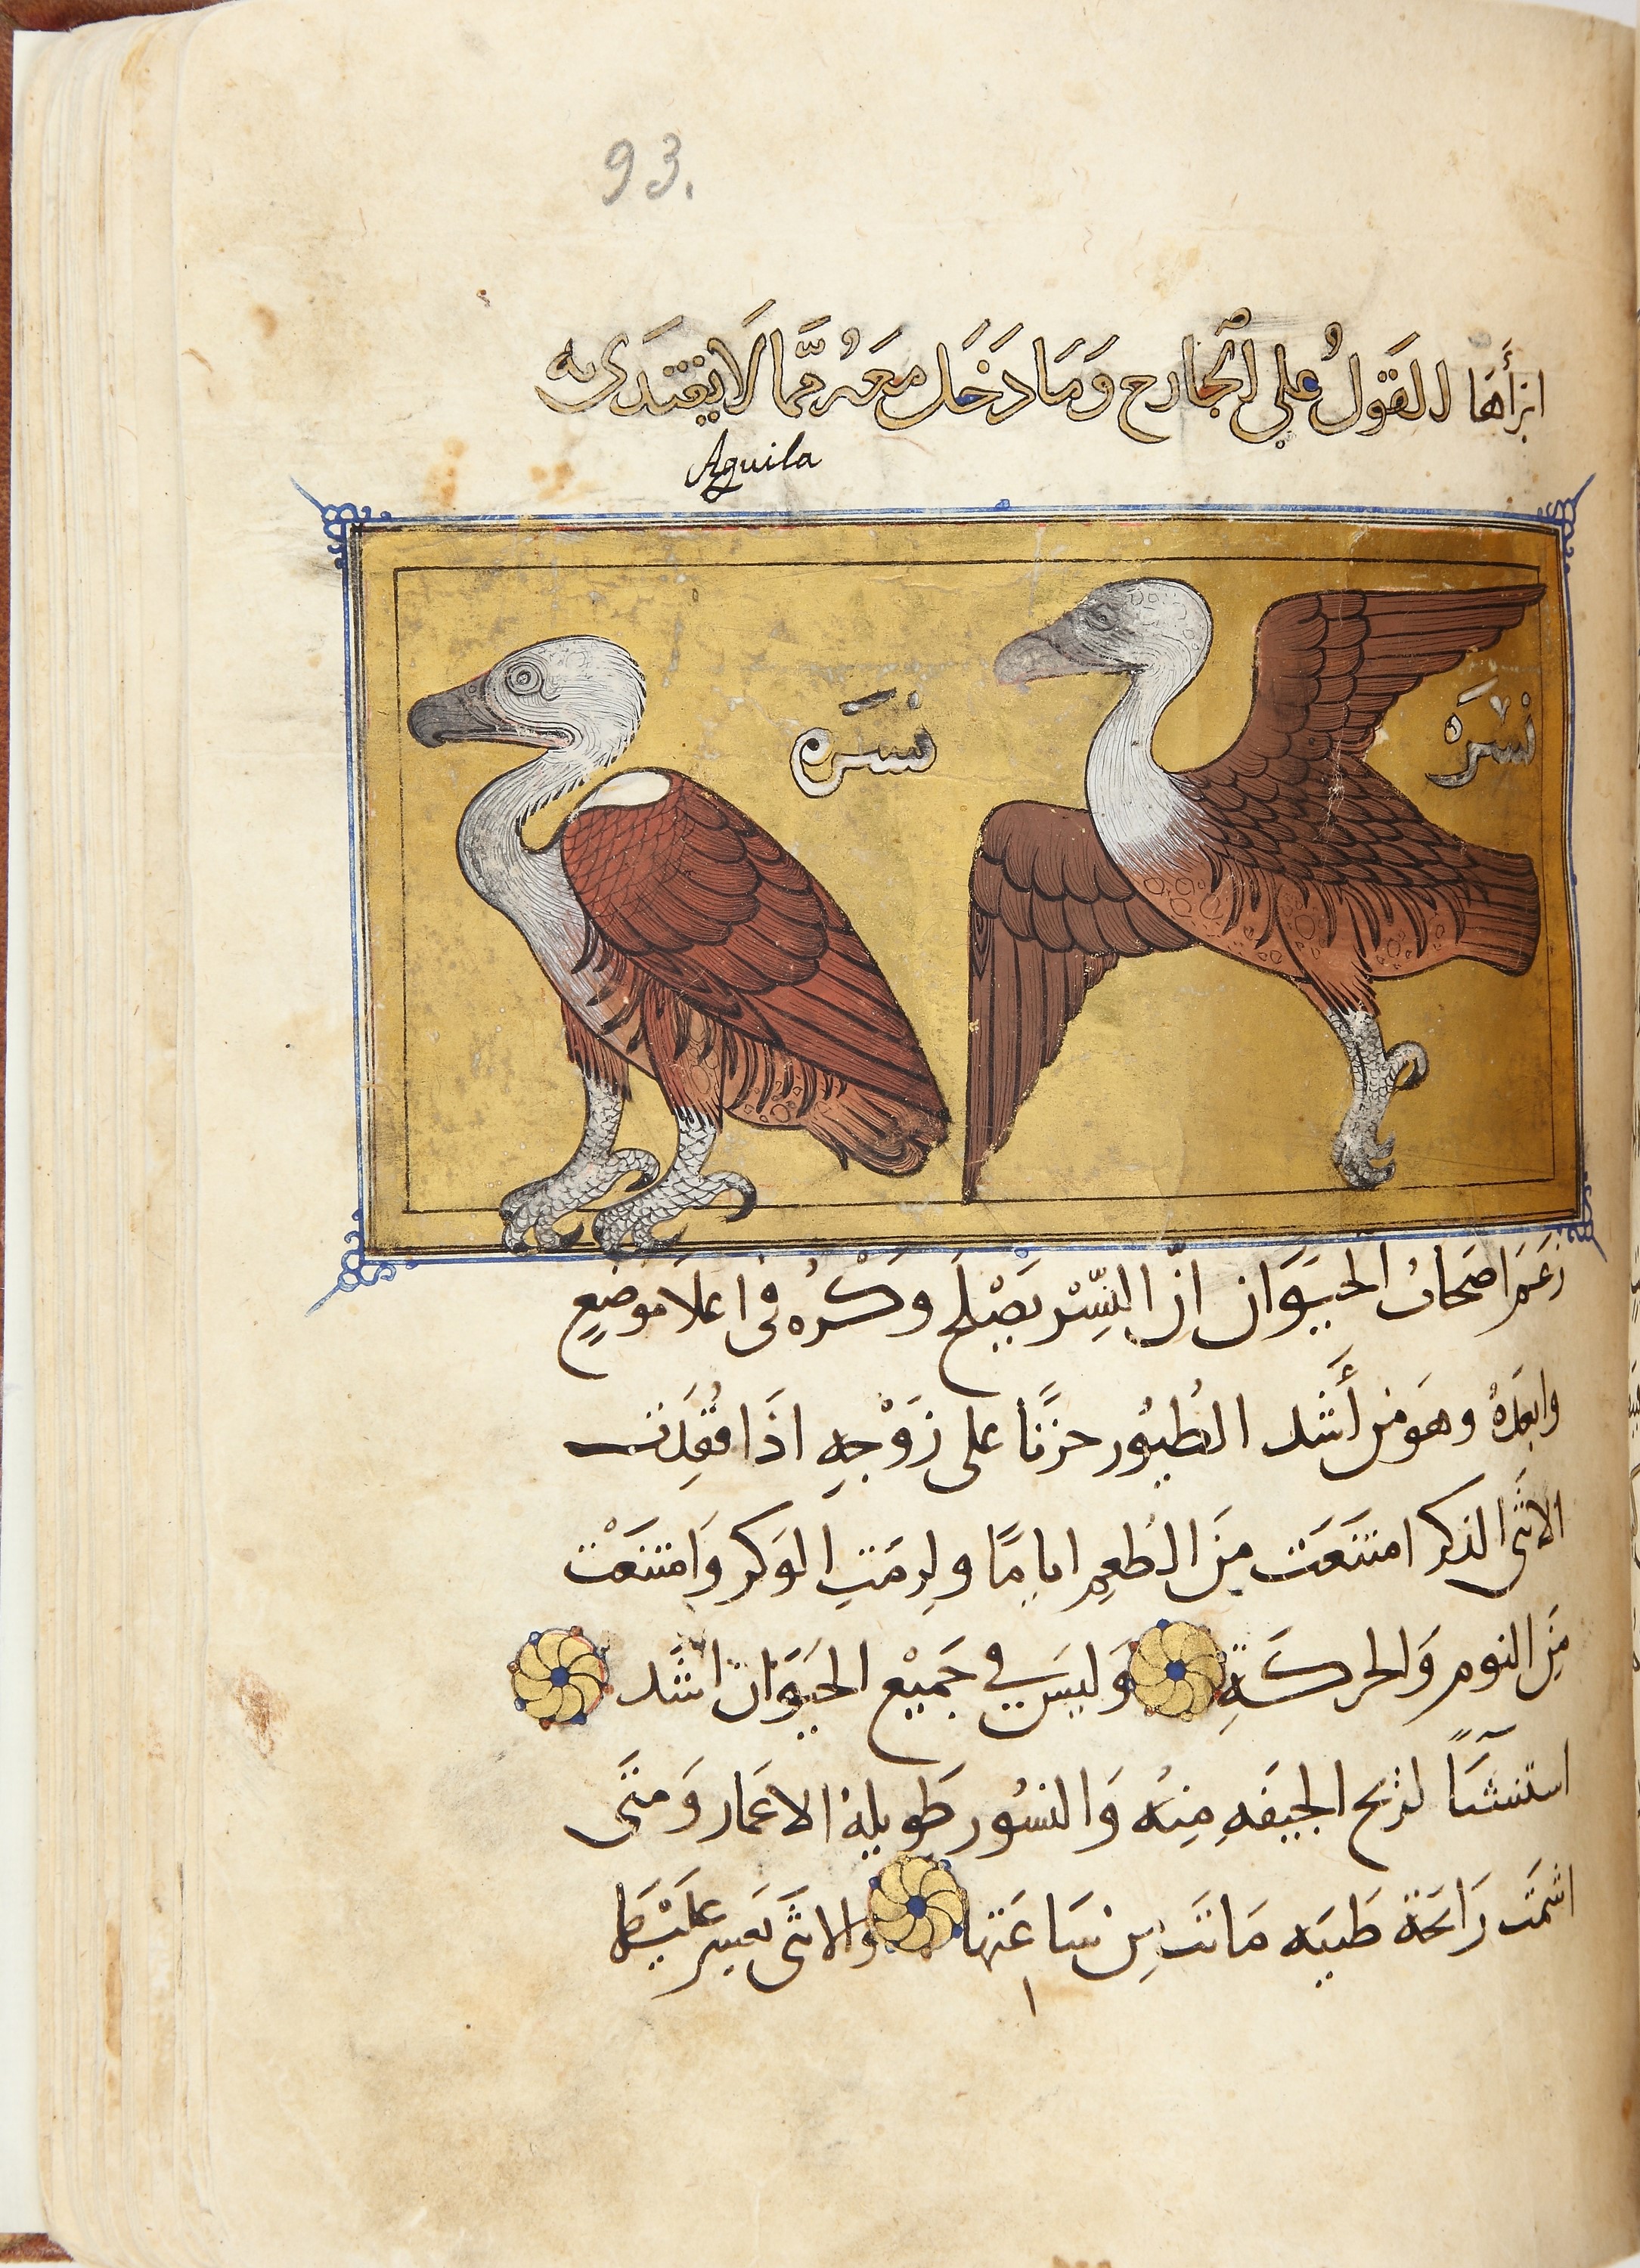 93.
ابزأها القَولُ على الجَارح وَمَا دَخَل مَعَهُ مِمَّا لَا يقتَدَى به
Aquila
نسَره
نسَره
زعَمَ اصحَابُ الحيَوَان انّ النِّسْر يَصْلح وَكْرُه في اعلَا موضِعٍ
وابعَدهُ وهوَ من أَشد الطُيُور حزنًا على زَوْجِهِ اذَا فُقِدَت
الانثَى الذكر امتنَعَت مِنَ الطُعِم اياماً ولزِمَتِ الوَكر وَامتنَعْت
مِنَ النوم وَالحركَةِ وَليسَ في جَميْع الحيَوَان اشَد
استنشَآً لريح الجيفَهِ مِنهُ وَالنسُور طَويلة الاعمَار وَمتَى
اشمَت رَائحَة طَيبَه مَاتَت مِن سَاعَتها وَالانثَى تعسِر عَليْهَا